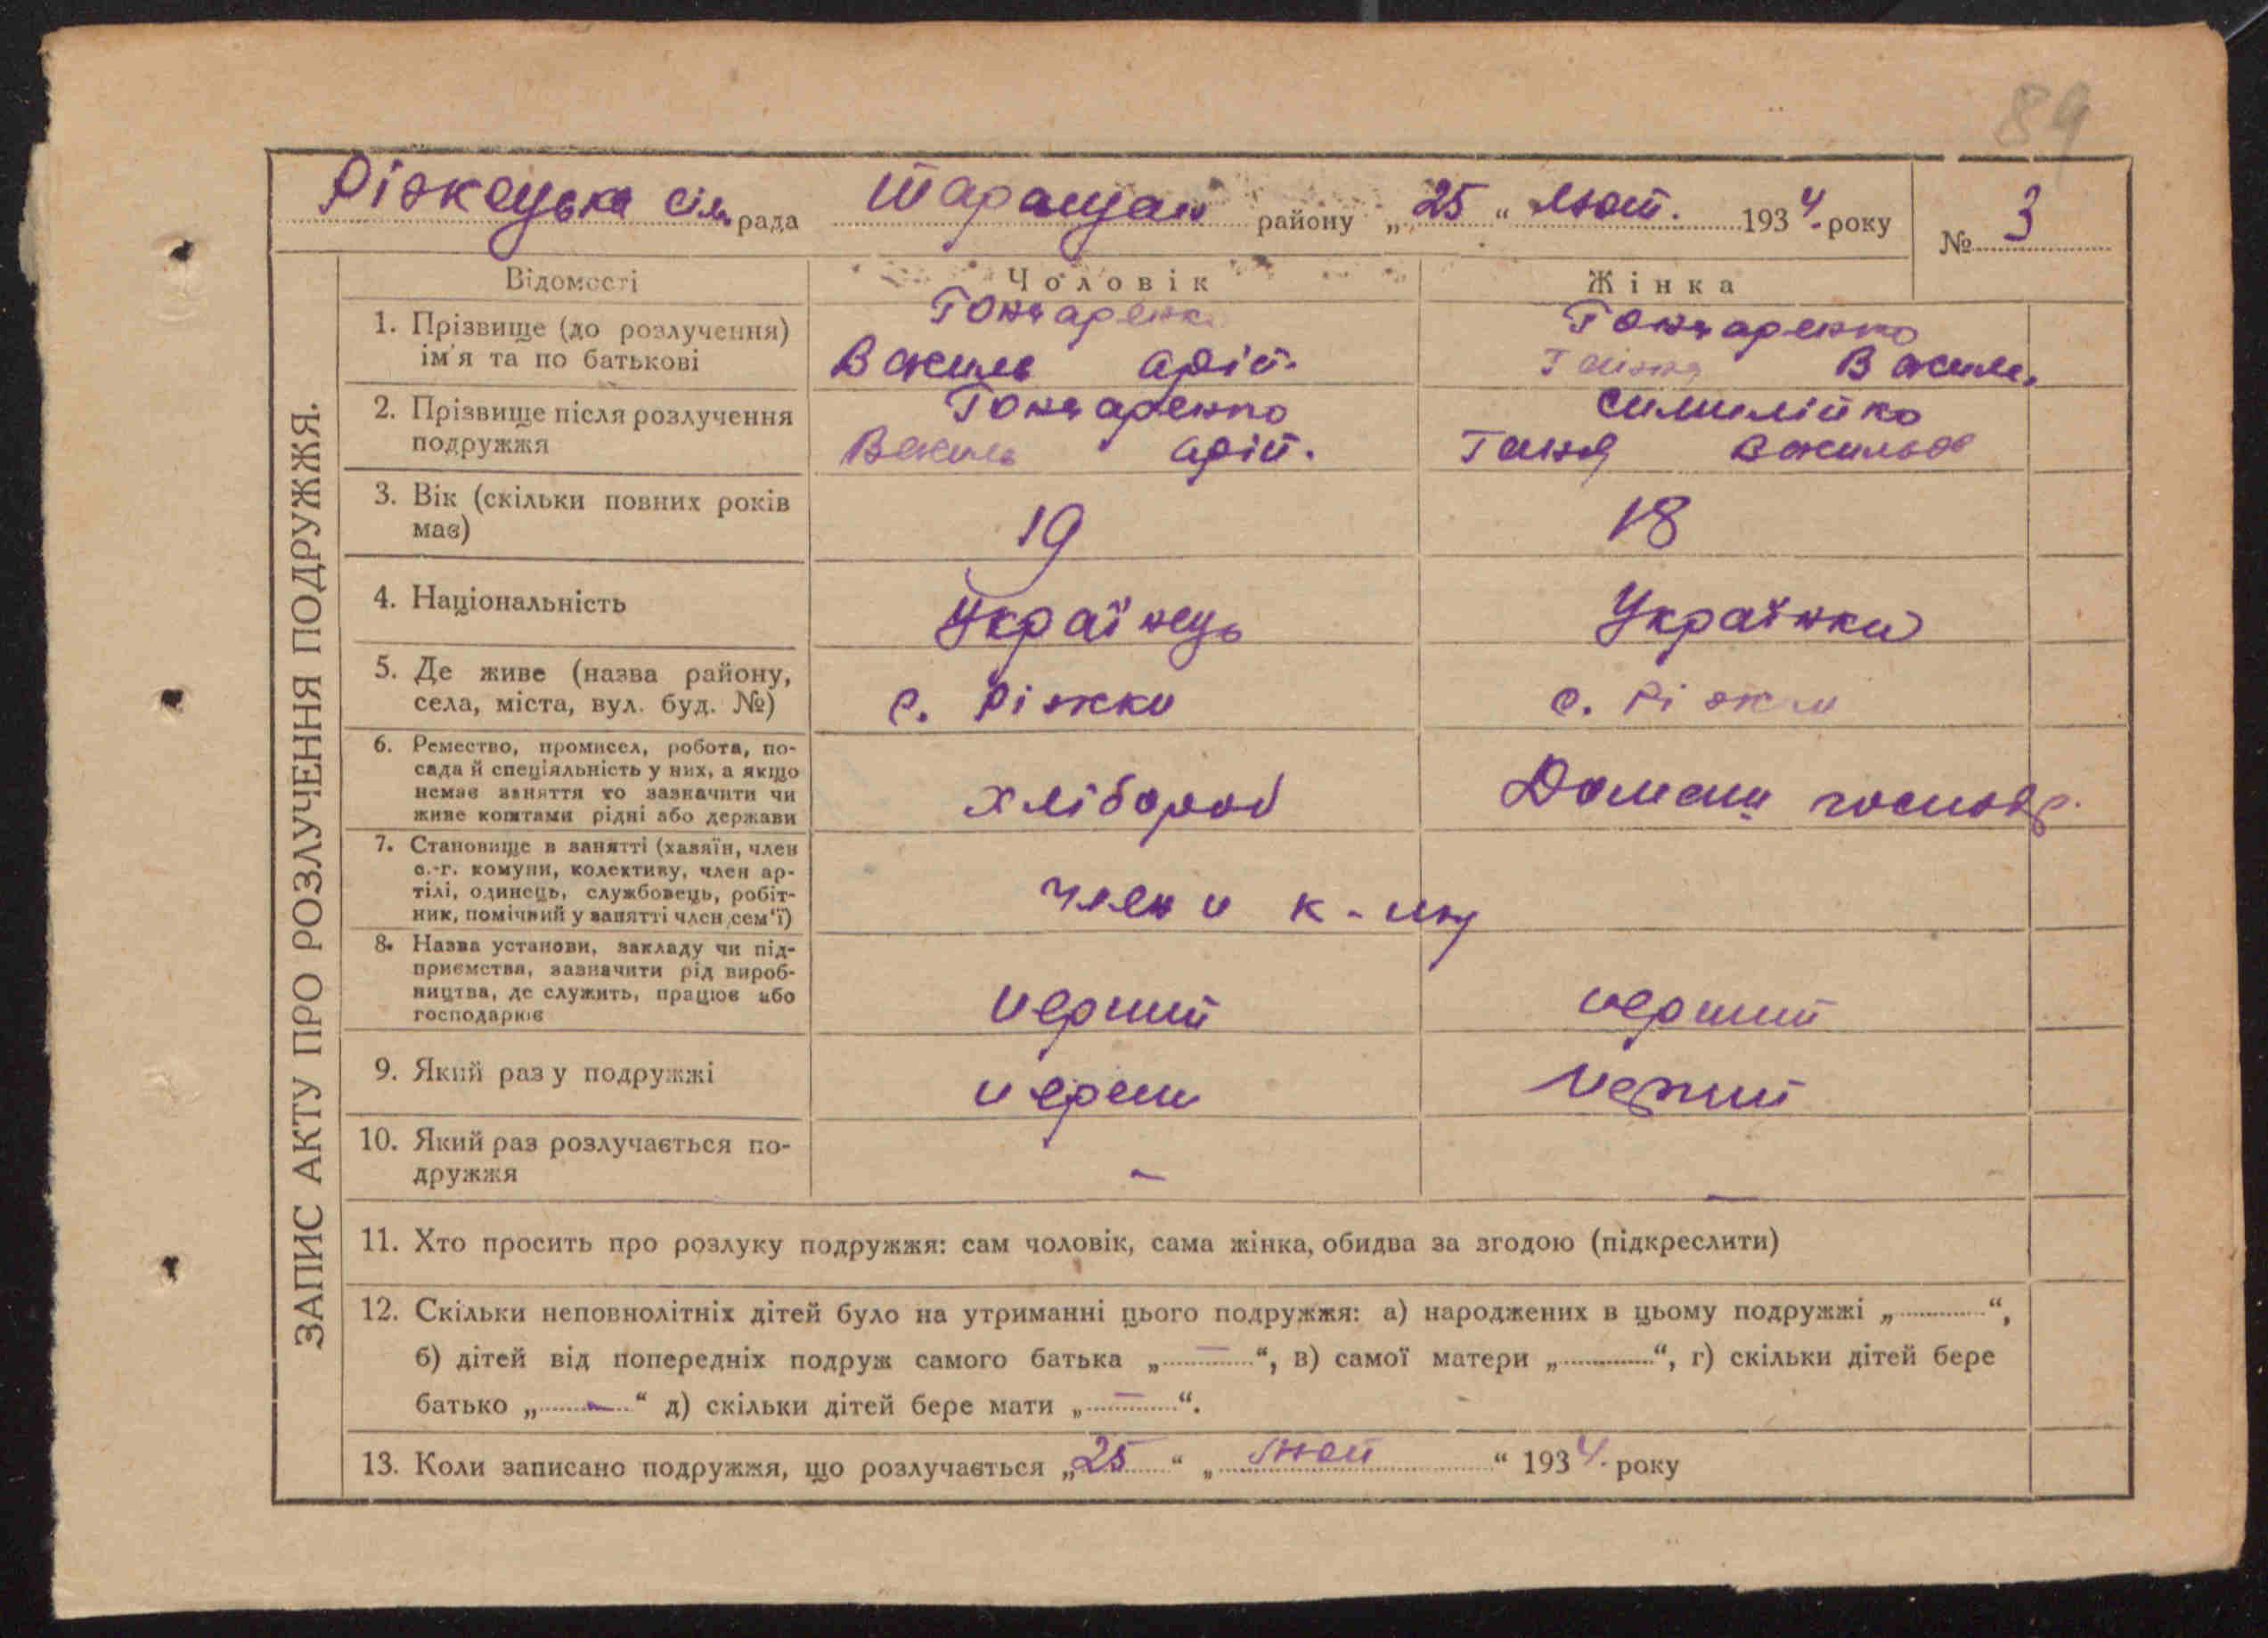 89
Ріжкецька сіль рада Таращан району „25“ лют. 1934. року № 3
ЗАПИС АКТУ ПРО РОЗЛУЧЕННЯ ПОДРУЖЖЯ.
Відомості Чоловік Жінка
1. Прізвище (до розлучення) Гончаренк Гончаренко
ім'я та по батькові Василь Васил.
2. Прізвище після розлучення Гончаренко
подружжя Василь Ганя Васильов
3. Вік (скільки повних років
має) 19 18
4. Національність Українець Українка
5. Де живе (назва району,
села, міста, вул. буд. №) с. Ріжки с. Ріжки
6. Ремество, промисел, робота, по-
сада й спеціяльність у них, а якщо
немає заняття то зазначити чи хлібороб Домашн господр.
живе коштами рідні або держави
7. Становище в занятті (хазяїн, член
с.-г. комуни, колективу, член ар-
тілі, одинець, службовець, робіт- члени к-
ник, помічний у занятті член сем'ї)
8. Назва установи, закладу чи під-
приємства, зазначити рід вироб-
ництва, де служить, працює або перший перший
господарює
9. Який раз у подружжі перши перший
10. Який раз розлучається по- –
дружжя –
11. Хто просить про розлуку подружжя: сам чоловік, сама жінка, обидва за згодою (підкреслити)
12. Скільки неповнолітніх дітей було на утриманні цього подружжя: а) народжених в цьому подружжі „..........“,
б) дітей від попередніх подруж самого батька „.....–.....“, в) самої матери „..........“, г) скільки дітей бере
батько „.....–.....“ д) скільки дітей бере мати „.....–.....“.
13. Коли записано подружжя, що розлучається „25“ „лют“ 1934. року